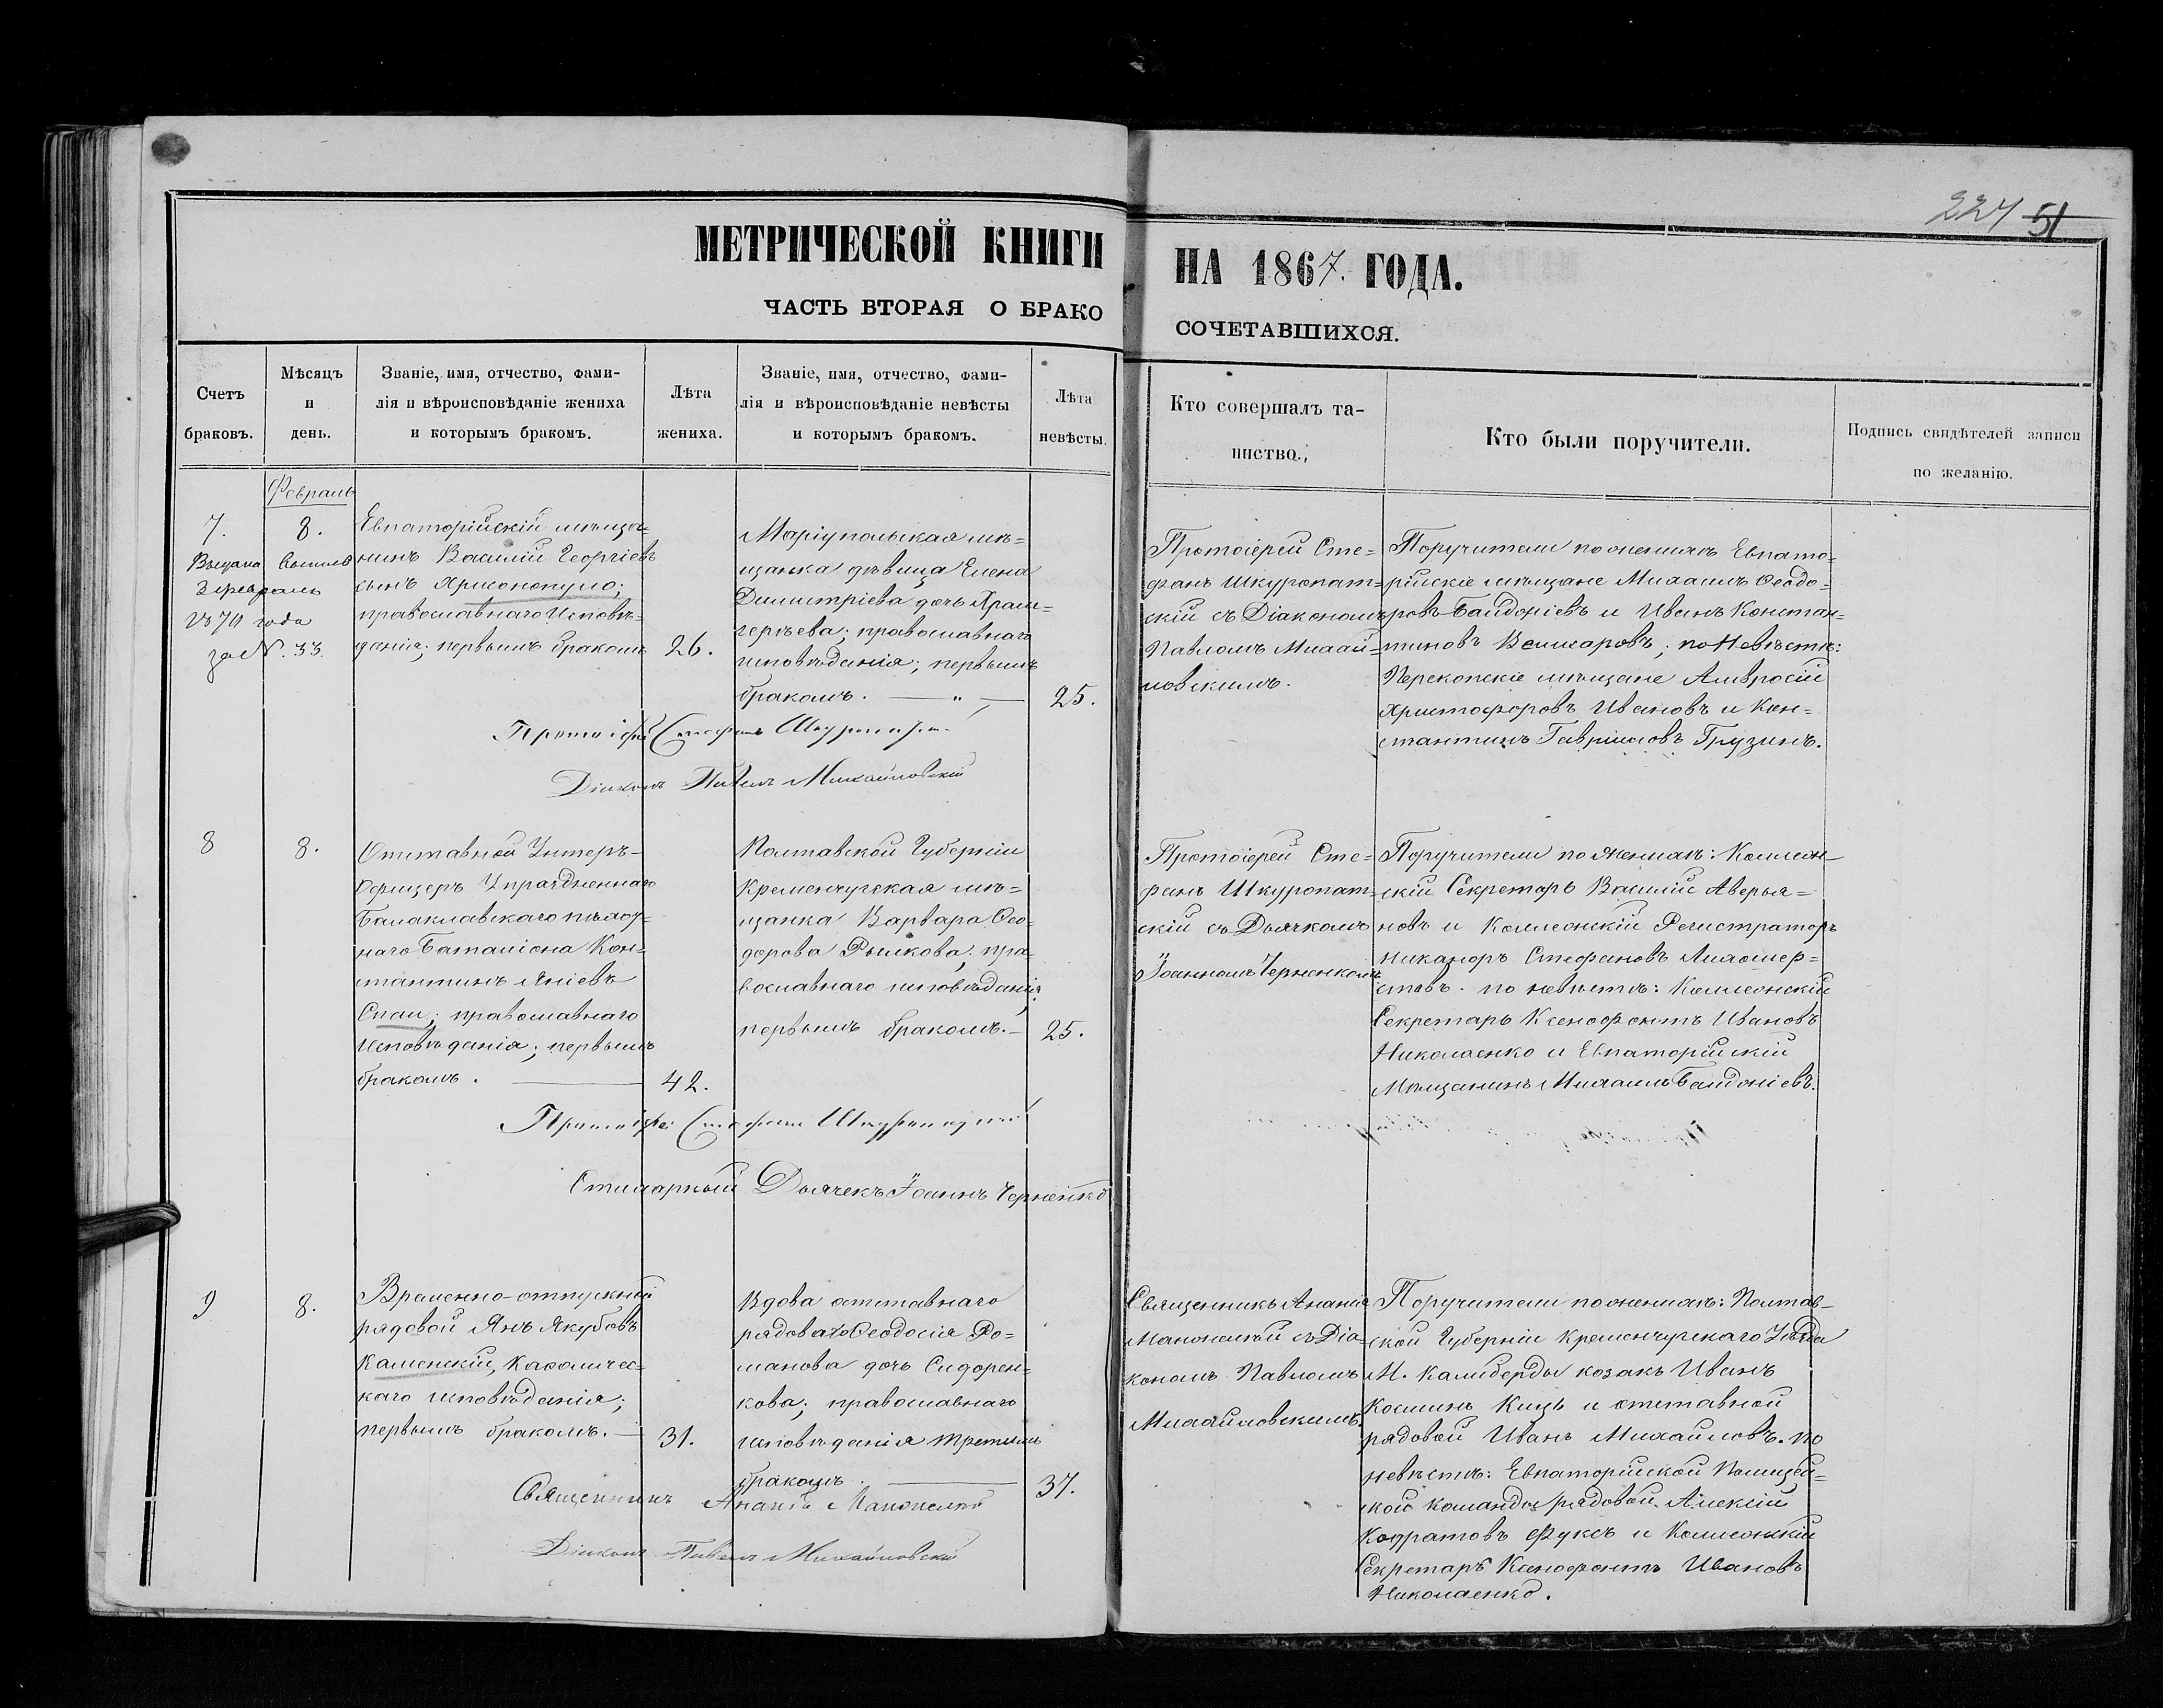 227 51
МЕТРИЧЕСКОЙ КНИГИ НА 1867. ГОДА.
ЧАСТЬ ВТОРАЯ О БРАКОСОЧЕТАВШИХСЯ.
Счетъ
браковъ.
Мѣсяцъ
и
день.
Званіе, имя, отчество, фами-
лія и вѣроисповѣданіе жениха
и которымъ бракомъ.
Лѣта
жениха.
Званіе, имя, отчество, фами-
лія и вѣроисповѣданіе невѣсты
и которымъ бракомъ.
Лѣта
невѣсты.
Кто совершалъ та-
инство.
Кто были поручители.
Подпись свидѣтелей записи
по желанію.
Февраль
7.
Выдана
3 февраль
года
за N. 33.
8.
Евпаторійскій мѣща-
нинъ Василій Георгіевъ
сынъ Христопуло;
православнаго исповѣ-
данія; первымъ бракомъ
26.
Маріупольская мѣ-
щанка дѣвица Елена
Димитріева дочь Храм-
; православнаго
исповѣданія; первымъ
бракомъ. — „ —
25.
Протоіерей Сте-
фанъ Шкуропат-
скій съ Діакономъ
Павломъ Михай-
ловскимъ.
Поручители по женихѣ Евпато-
рійскіе мѣщане Михаилъ Ѳеодо-
ровъ Байдоніевъ и Иванъ Констан-
тиновъ ; по Невѣстѣ:
Перекопскіе мѣщане Амвросій
Христофоровъ Ивановъ и Кон-
стантинъ Гавріиловъ Грузинъ.
Протоіерей Стефанъ
Діаконъ Павелъ Михайловскій
8
8.
Отставной Унтеръ-
Офицеръ Упраздненнаго
Балаклавскаго пѣхот-
наго Баталіона Кон-
стантинъ Яніевъ
Спаи; православнаго
исповѣданія; первымъ
бракомъ. —
42.
Полтавской Губерніи
Кременчугская мѣ-
щанка Варвара Ѳео-
дорова Рылкова; пра-
вославнаго исповѣданія;
первымъ бракомъ. —
25.
Протоіерей Сте-
фанъ Шкуропат-
скій съ Дьячкомъ
Іоанномъ Черненкомъ
Поручители по женихѣ: Коллеж-
скій Секретарь Василій Аверья-
новъ и Коллежскій Регистраторъ
Никаноръ Стефановъ
. по невѣстѣ: Коллежскій
Секретарь Ксенофонтъ Ивановъ
Николаенко и Евпаторійскій
Мѣщанинъ Михаилъ Байдоніевъ.
Протоіерей Стефанъ
Стихарный Дьячекъ Іоаннъ Черненко
9
8.
Временно-отпускной
рядовой Янъ Якубовъ
Каменскій, Католичес-
каго исповѣданія;
первымъ бракомъ. —
31.
Вдова отставнаго
рядоваго Ѳеодосія Ро-
манова дочь Сидорен-
кова; православнаго
исповѣданія третьимъ
бракомъ. —
37.
Священникъ Ананія
съ Діа-
кономъ Павломъ
Михайловскимъ.
Поручители по женихѣ: Полтав-
ской Губерніи Кременчугскаго Уѣзда
М. Камберды козакъ Иванъ
и отставной
рядовой Иванъ Михайловъ. по
невѣстѣ: Евпаторійской Полицей-
ской команды рядовой Алексій
Кодратовъ Фуксъ и Коллежскій
Секретарь Ксенофонтъ Ивановъ
Николаенко.
Священникъ Ананія
Діаконъ Павелъ Михайловскій